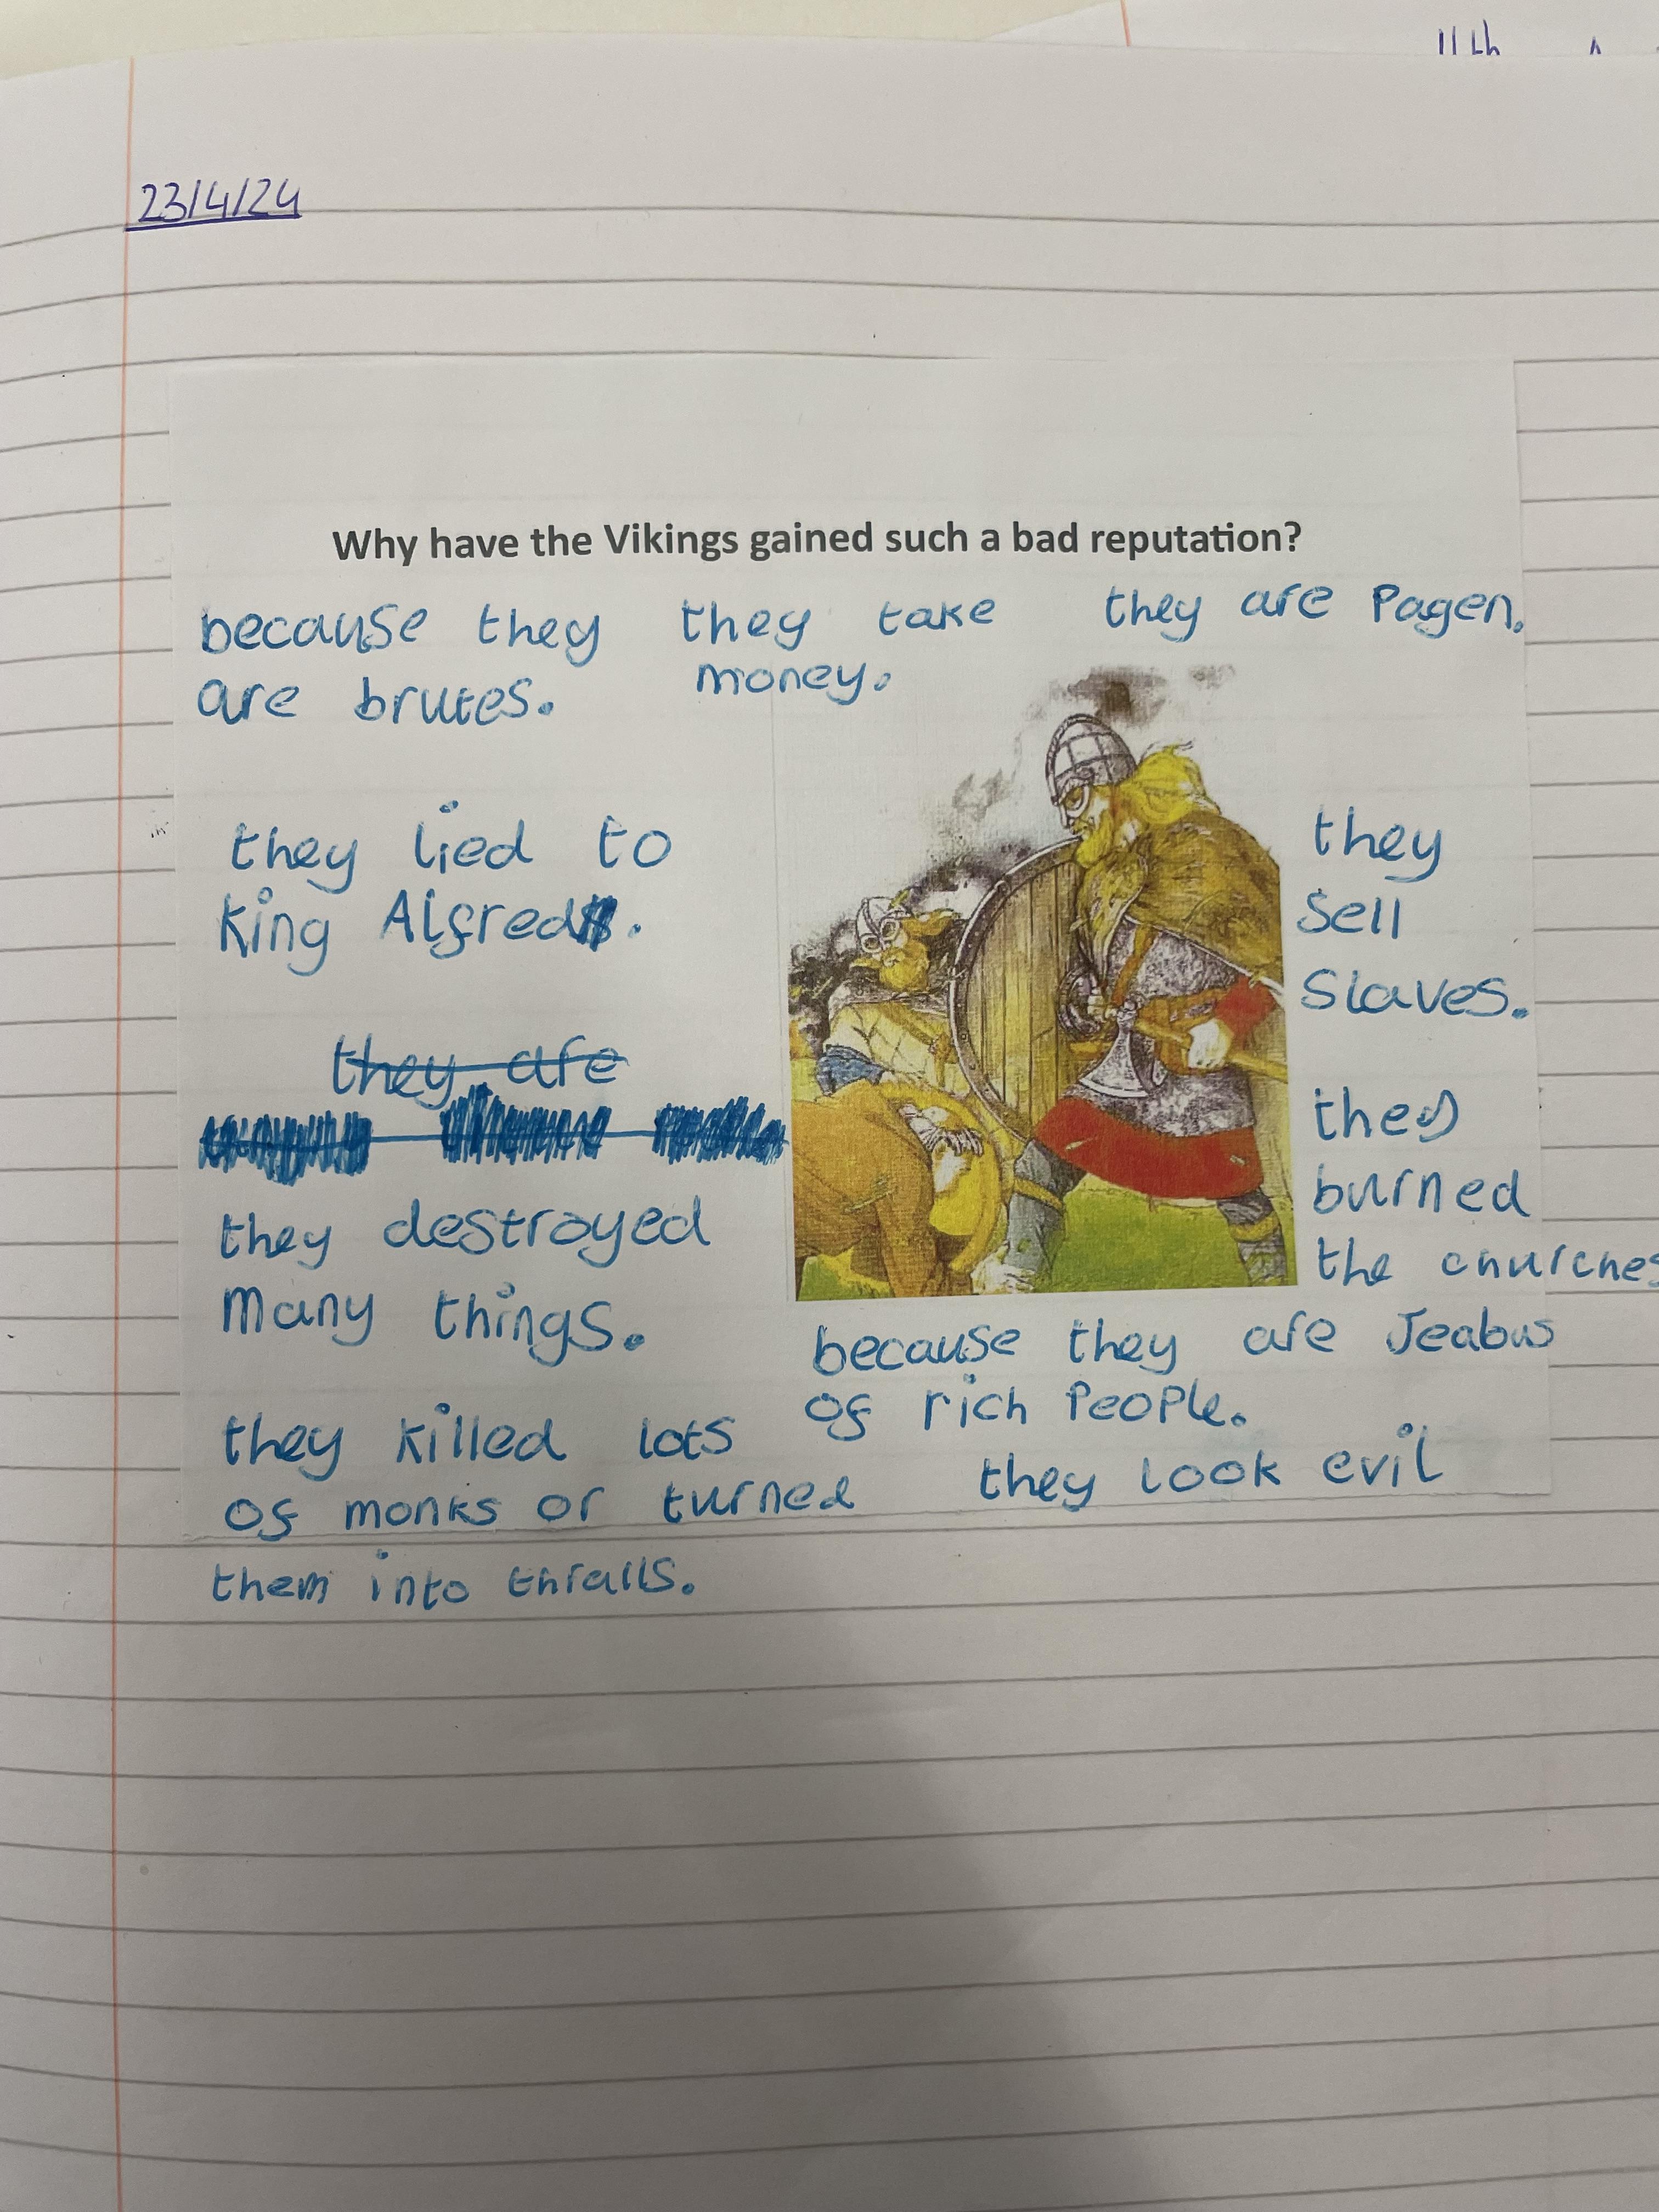 11th
23/4/24
Why have the Vikings gained such a bad reputation?
because they
are brutes.
they take
money.
they are Pagen.
they lied to
King Alfred.
they
sell
slaves.
they are
they destroyed
many things.
they
burned
the churches
because they are Jeabus
of rich People.
they killed lots
of monks or turned
them into thralls.
they look evil